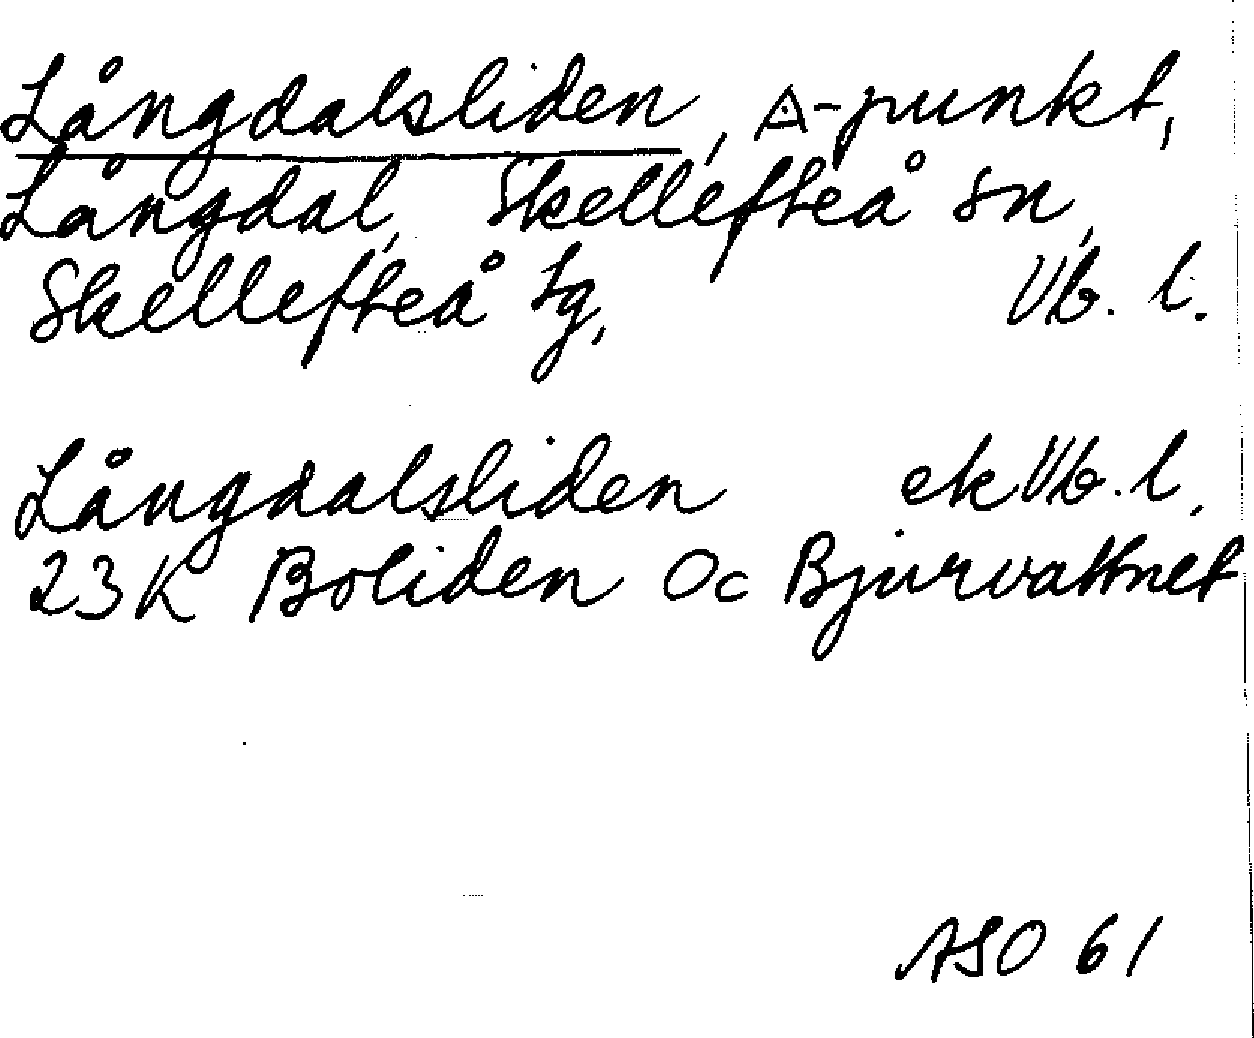 Långdalsliden, ◬-punkt,
Långdal, Skellefteå sn,
Skellefteå tg, Vb. l.
Långdalsliden ek Vb. l.
23K Boliden Oc Bjurvattnet
ASO 61